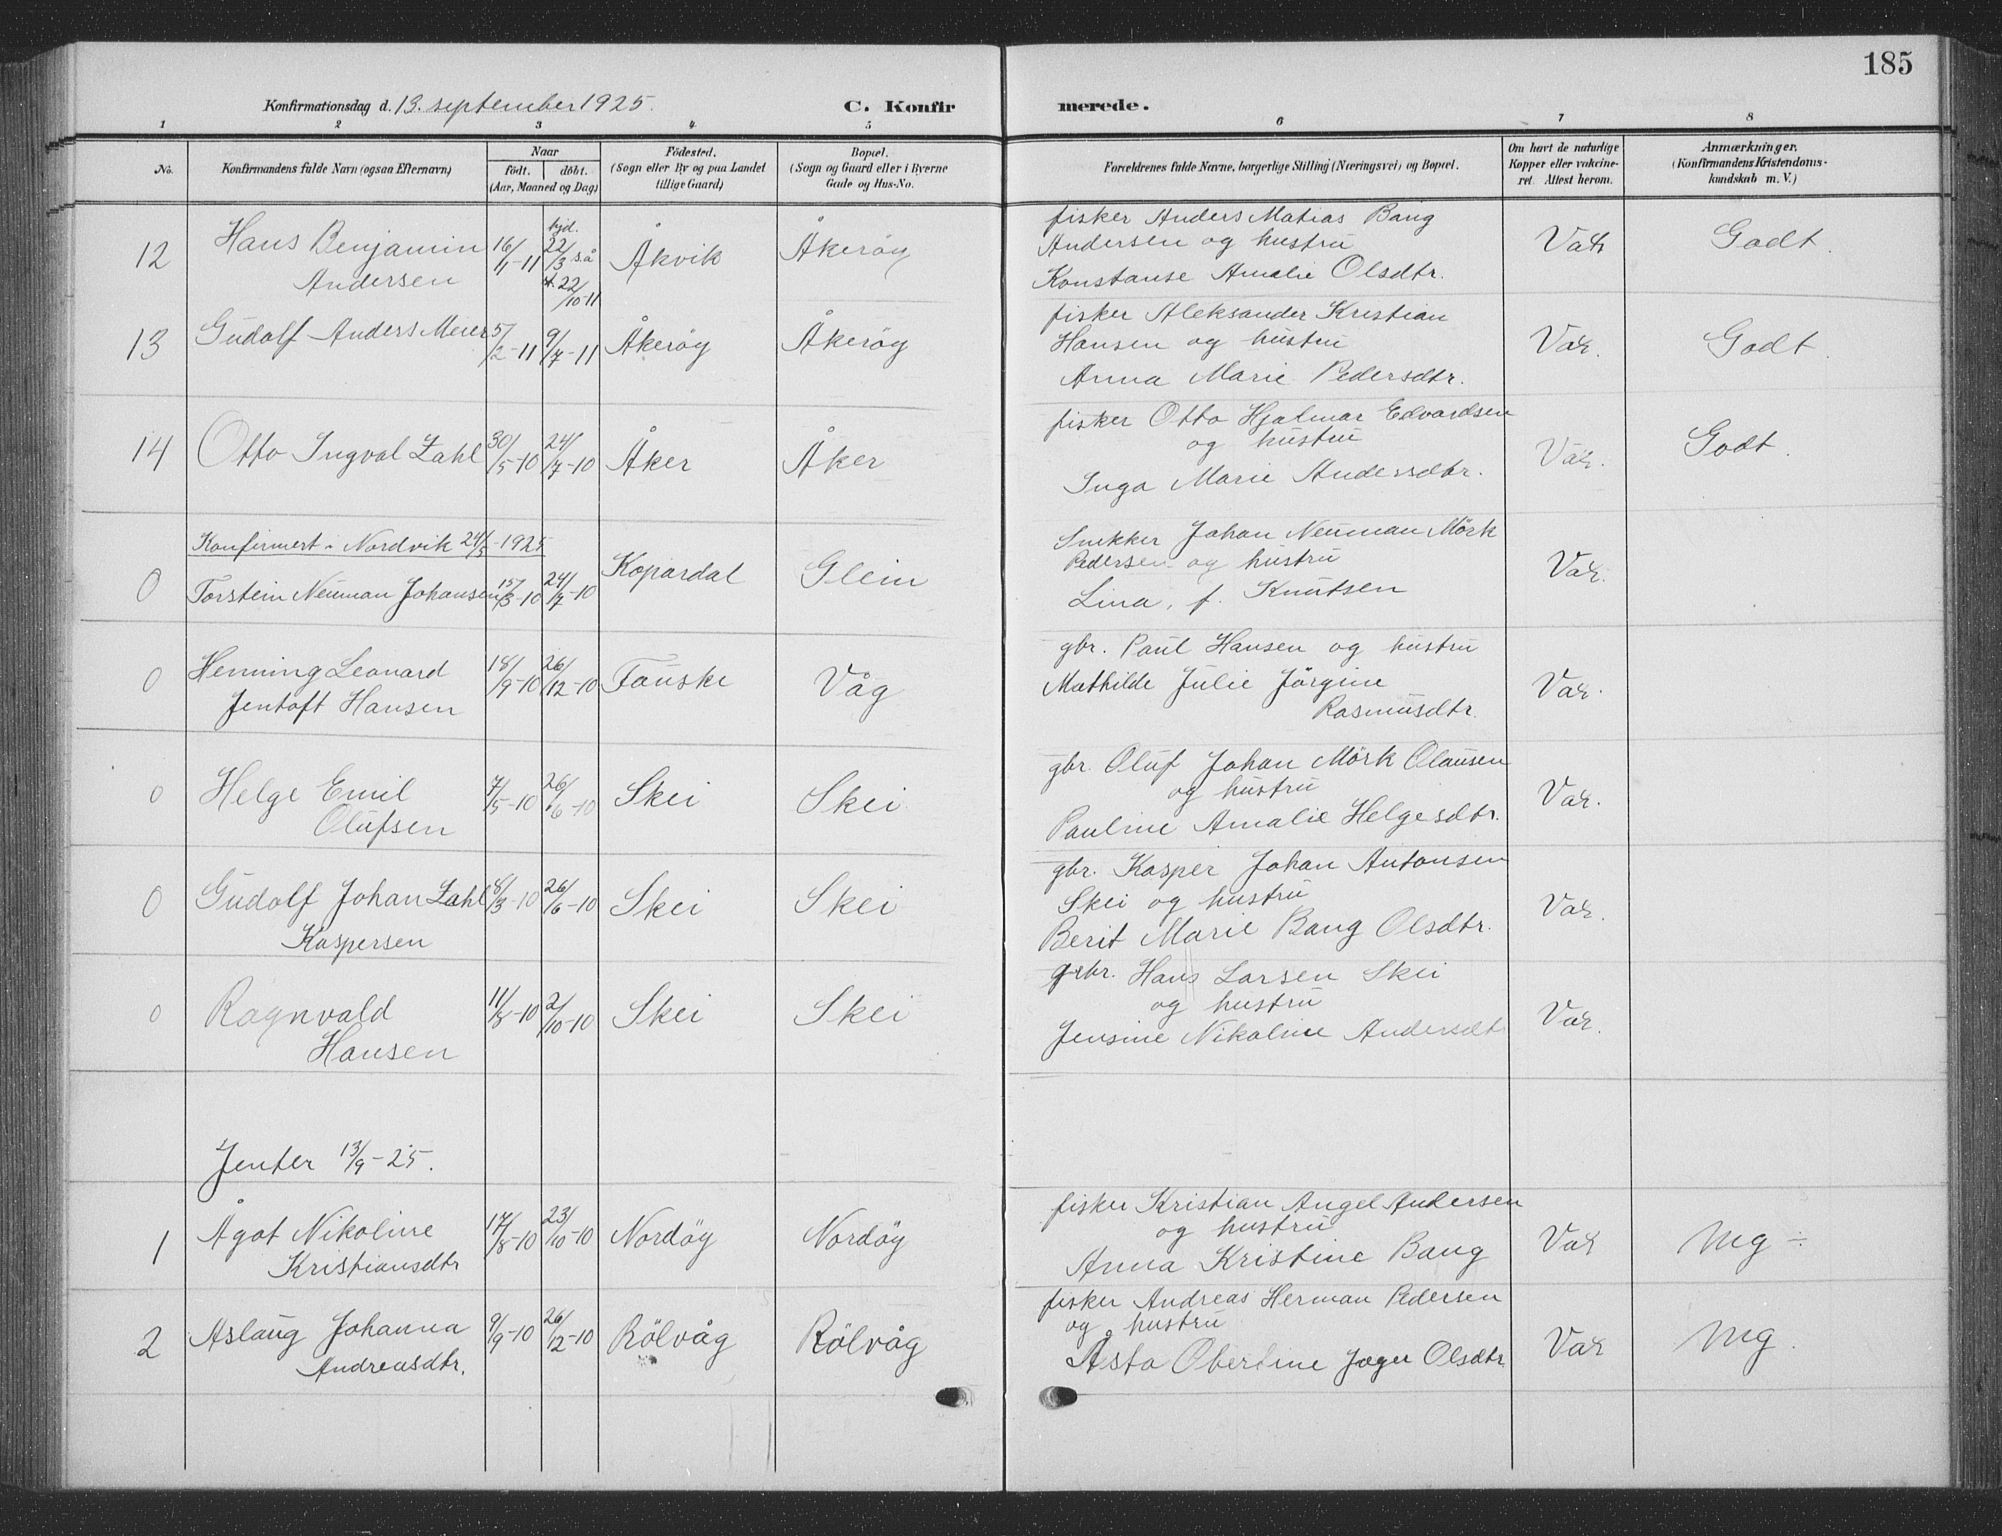 185
Konfirmationsdag d. 13. september 1925. C. Konfirmerede.
1 2 3 4 5 6 7 8
No. Konfirmandens fulde Navn (ogsaa Efternavn) Naar født. døbt. (Aar, Maaned og Dag) Fødested. (Sogn eller By og paa Landet tillige Gaard) Bopæl. (Sogn og Gaard eller i Byerne Gade og Hus-No. Forældrenes fulde Navne, borgerlige Stilling (Næringsvei) og Bopæl. Om havt de naturlige Kopper eller vakcineret. Attest herom. Anmærkninger. (Konfirmandens Kristendomskundskab m. V.)
12 Hans Benjamin Andersen 16/1-11 hjd. 22/3 s.å. 22/10-11 Åkvik Åkerøy fisker Anders Matias Bang Andersen og hustru Konstanse Amalie Olsdtr. Vak Godt.
13 Gudolf Anders Meier 5/2-11 9/7-11 Åkerøy Åkerøy fisker Aleksander Kristian Hansen og hustru Anna Marie Pedersdtr. Vak. Godt.
14 Otto Ingval Zahl 30/5-10 24/7-10 Åker Åker fisker Otto Hjalmar Edvardsen og hustru Inga Marie Andersdtr. Vak. Godt.
Konfirmert i Nordvik 24/5-1925
0 Torstein Neuman Johansen 15/3-10 24/7-10 Kopardal Glein Snekker Johan Neuman Mörk Pedersen og hustru Lina, f. Knutsen Vak.
0 Henning Leonard Jentoft Hansen 18/9-10 26/12-10 Fauske Våg gbr. Paul Hansen og hustru Mathilde Julie Jörgine Rasmusdtr. Vak.
0 Helge Emil Olufsen 7/5-10 26/6-10 Skei Skei gbr. Oluf Johan Mörk Olausen og hustru Pauline Amalie Helgesdtr. Vak.
0 Gudolf Johan Zahl Kaspersen 8/3-10 26/6-10 Skei Skei gbr. Kasper Johan Antonsen Skei og hustru Berit Marie Bang Olsdtr. Vak.
0 Ragnvald Hansen 11/8-10 2/10-10 Skei Skei gbr. Hans Larsen Skei og hustru Jensine Nikoline Andersdt Vak.
Jenter 13/9-25.
1 Ågot Nikoline Kristiansdtr 17/8-10 23/10-10 Nordöy Nordöy fisker Kristian Angel Andersen og hustru Anna Kristine Bang Vak Mg ÷
2 Aslaug Johanna Andreasdtr. 9/9-10 26/12-10 Rölvåg Rölvåg fisker Andreas Herman Pedersen og hustru Åsta Obertine Jæger Olsdtr Vak Mg.